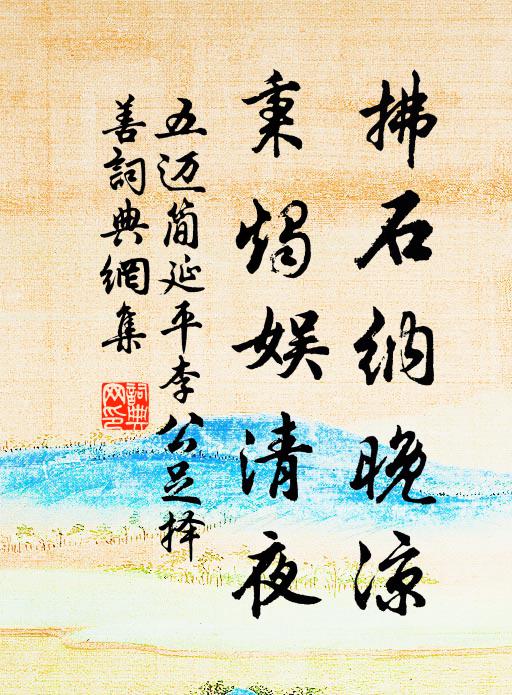 拂石纳晚凉
秉烛娱清夜
五迈简延平李公足择
善詞典網集
詞典
网印